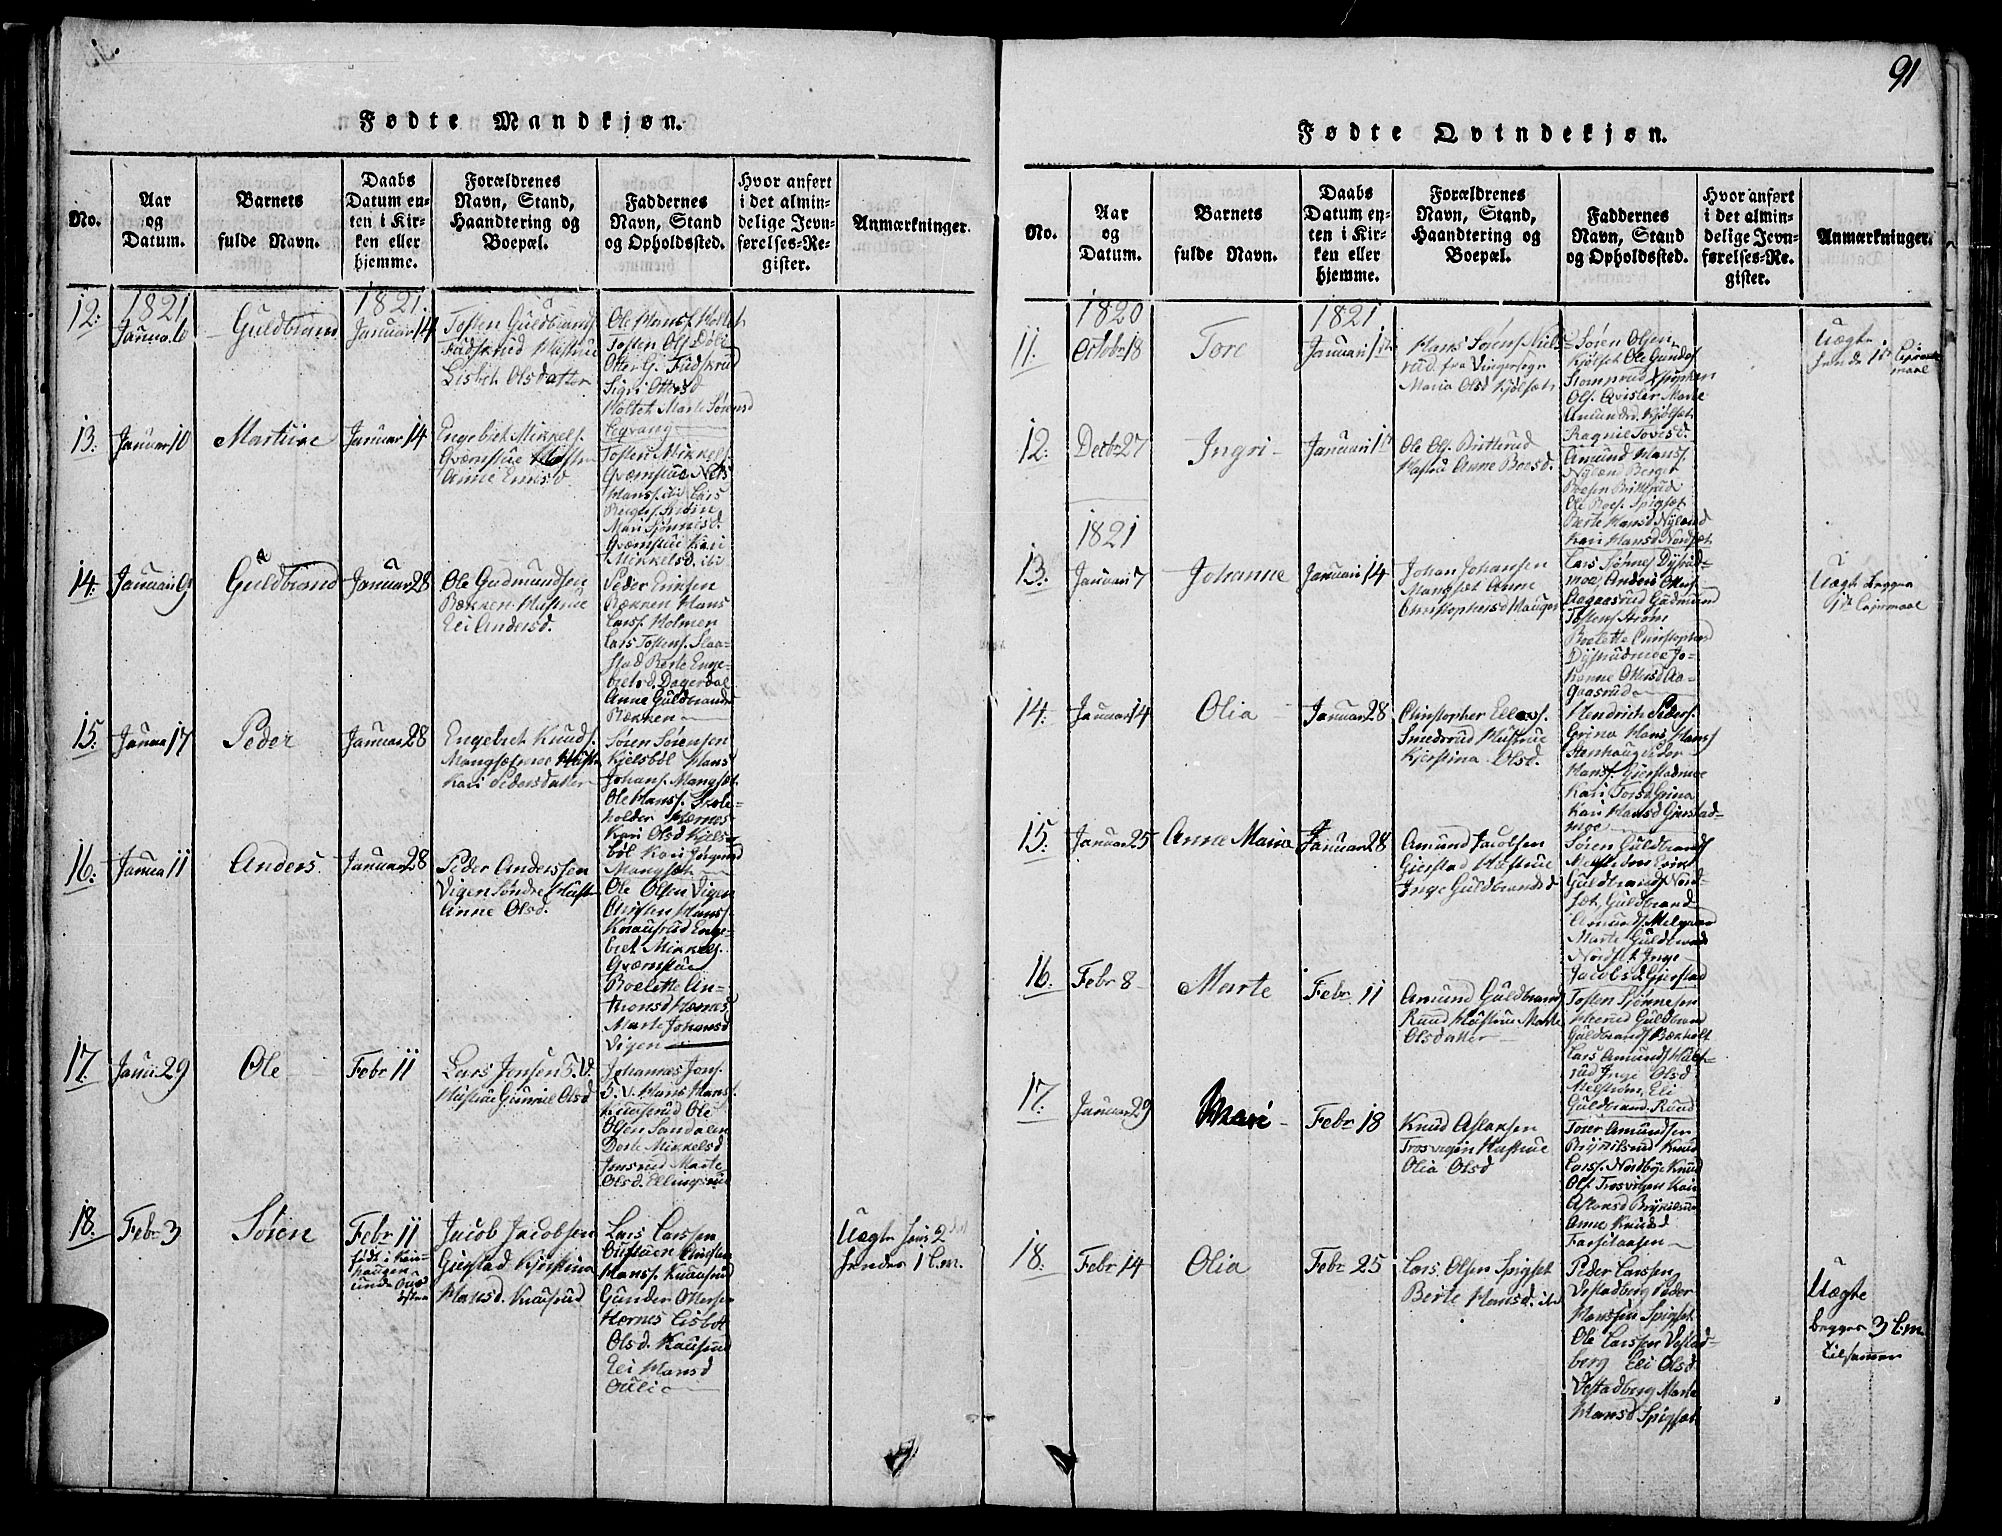 91
Fødte Mandkjøn.
No.
Aar
og
Datum.
Barnets
fulde Navn.
Daabs
Datum en-
ten i Kir-
ken eller
hjemme.
Forældrenes
Navn, Stand,
Haandtering og
Boepæl.
Faddernes
Navn, Stand
og Opholdssted.
Hvor anført
i det almin-
delige Jevn-
førelses-Re-
gister.
Anmærkninger.
12:
1821
Januar 6
Guldbrand
1821
Januar 14
Tosten Guldbrands.
Fudskrud Hustrue
Lisbet Olsdatter
Ole Hans. Holtet
Tosten Ols. Döli
Otter G. Fudskrud
Sigri Ottersd
Holtet Marte Sörensd
Egvang
13.
Januar 10
Martine
Januar 14
Engebret Mikkels.
Qvæmstue Hustru
Anne Ennisd.
Tosten Mikkels.
Qvæmstue Nels
Hanss. ibi Lars
Mari Sjönnisd.
Qvæmstue Kari
Mikkelsd. ibi
14.
Januari 9
Guldbrand
Januar 28
Ole Gudmundsen
Bækken Hustrue
Eli Andersd.
Peder Eriksen
Bækken Hans
Larss. Holmen
Lars Tostens. Slaa-
stad Berte Enge-
bretsd. Dagerdal
Anne Guldbrands
Bækken
15.
Janua 17
Peder
Januar 28
Engebret Knuds.
Mangsetmoe Hustru
Kari Pedersdatter
Søren Sørensen
Kjelsböl Hans
Johans. Mangset
Ole Hans. Skole-
holder Hærnes
Kari Olsd Kjels-
böl Kari
Mangset
16.
Janua 11
Anders
Januar 28
Peder Anderssen
Vigen Søndre Hustr
Anne Olsd.
Ole Olsen Vigen
Christen Hanss.
Knausrud Enge-
bret Mikkels.
Qvæmstue
Boelette An-
thonsd Hærnes
Marte Johansd
Vigen
17.
Janu. 29
Ole
Febr 11
Lars Jensen S. V.
Hustrue Gunnil Olsd
Johannes Jons.
S. V. Hans Hans.
Knausrud Ole
Olsen Sandalen
Dorte Mikkelsd
Jonsrud Marte
Olsd. Ellingsrud
18.
Febr 3
Sören
Febr 11
Jacob Jacobsen
Gierstad Kjerstina
Hansd. Knausrud
Lars Larssen
Hanss. Knausrud
Gunder Ottersen
Hærnes Lisbet
Olsd. Knausrud
Eli Hansd
Ouli
Uægte hans 2det
hendes 1 l.m.
Fødte Qvindekjøn.
No.
Aar
og
Datum.
Barnets
fulde Navn.
Daabs
Datum en-
ten i Kir-
ken eller
hjemme.
Forældrenes
Navn, Stand,
Haandtering og
Boepæl.
Faddernes
Navn, Stand
og Opholdssted.
Hvor anført
i det almin-
delige Jevn-
førelses-Re-
gister.
Anmærkninger.
11.
1820
Octobr 18
Tore
1821
Januari 1ste
Hans Sörens. Niels-
rud fra Vingersogn
Maria Olsd Kjölset
Søren Olsen
Kjölset Ole Gunds.
Ols. Qvisler Marte
Amundsd. Kjölset
Ragnil Toresd.
Uægte
hendes 1ste Leier-
maal
12.
Decbr 27
Ingri
Januari 1st
Ole Ols. Britterud
Hustru Anne Boesd.
Amund Hans.
Nyland Berger
Boesen Britterud
Ole Boes. Spigset
Berte Hansd Nyland
Kari Hansd Nordset
1821
13.
Januari 7
Johanne
Januari 14
Johan Johansen
Mangset Anne
Christophersd Hauger
Lars Sjönnes. Dysrud-
moe, Anders Otters.
Aagaasrud Gudmund
Tostens. Ström
Boelette Christophersd
Dysrudmoe Jo-
hanne Ottersd Aa-
gaasrud
Uægte Begges
1ste Leiermaal
14.
Januar 14
Olia
Januar 28
Christopher Ellevs.
Smedsrud Hustrue
Kjerstina Olsd.
Hendrich Peders.
Grina Hans Hans.
Stenhaug Peder
Hans. Gierstadmoe
Kari Torsd. Grina
Kari Hansd Gierstad-
moe
15.
Januar 25
Anne Maria
Januar 28
Amund Jacobsen
Gierstad Hustrue
Inge Guldbrandsd
Sören Guldbrands.
Guldbrands. Nord-
set, Guldbrand
Amunds. Melgaard
Marte Guldbrands
Nordset Inge
Jacobsd. Gierstad
16.
Febr 8
Marte
Febr 11
Amund Guldbrands
Ruud Hustrue Marte
Olsdatter
Tosten Sjönnesen
Guldbrand
Guldbrands. Bækholt
Lars Amunds. Hult-
rud Inge Olsd
Melström, Eli
Guldbrand. Ruud
17.
Januar 29
Mari
Febr 18
Knud Aslaksen
Trosvigen Hustrue
Olia Olsd
Torer Amundsen
Brynilsrud Knud
Larss. Nordbye Knud
Ols. Trosvigen Kari
Brynilsrud
Anne Knudsd
18.
Febr 14
Olia
Febr 25
Lars Olsen Spigset
Berte Hansd. ibi
Peder Larssen
Vestadberg Peder
Hanssen Spigset
Ole Larssen Vestad-
berg Eli Olsd.
Vestadberg Marte
Hansd Spigset
Uægte
begges 3 l.m.
tilsamen